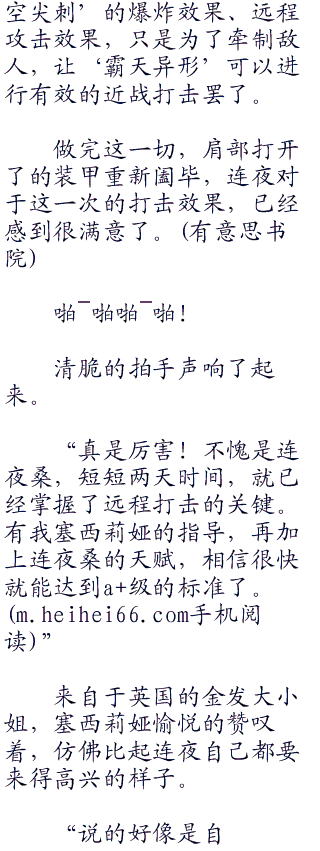 空尖刺’的爆炸效果、远程
攻击效果，只是为了牵制敌
人，让‘霸天异形’可以进
行有效的近战打击罢了。
做完这一切，肩部打开
了的装甲重新阖毕，连夜对
于这一次的打击效果，已经
感到很满意了。(有意思书
院)
啪¯啪啪¯啪！
清脆的拍手声响了起
来。
“真是厉害！不愧是连
夜桑，短短两天时间，就已
经掌握了远程打击的关键。
有我塞西莉娅的指导，再加
上连夜桑的天赋，相信很快
就能达到a+级的标准了。
(m.heihei66.com手机阅
读)”
来自于英国的金发大小
姐，塞西莉娅愉悦的赞叹
着，仿佛比起连夜自己都要
来得高兴的样子。
“说的好像是自